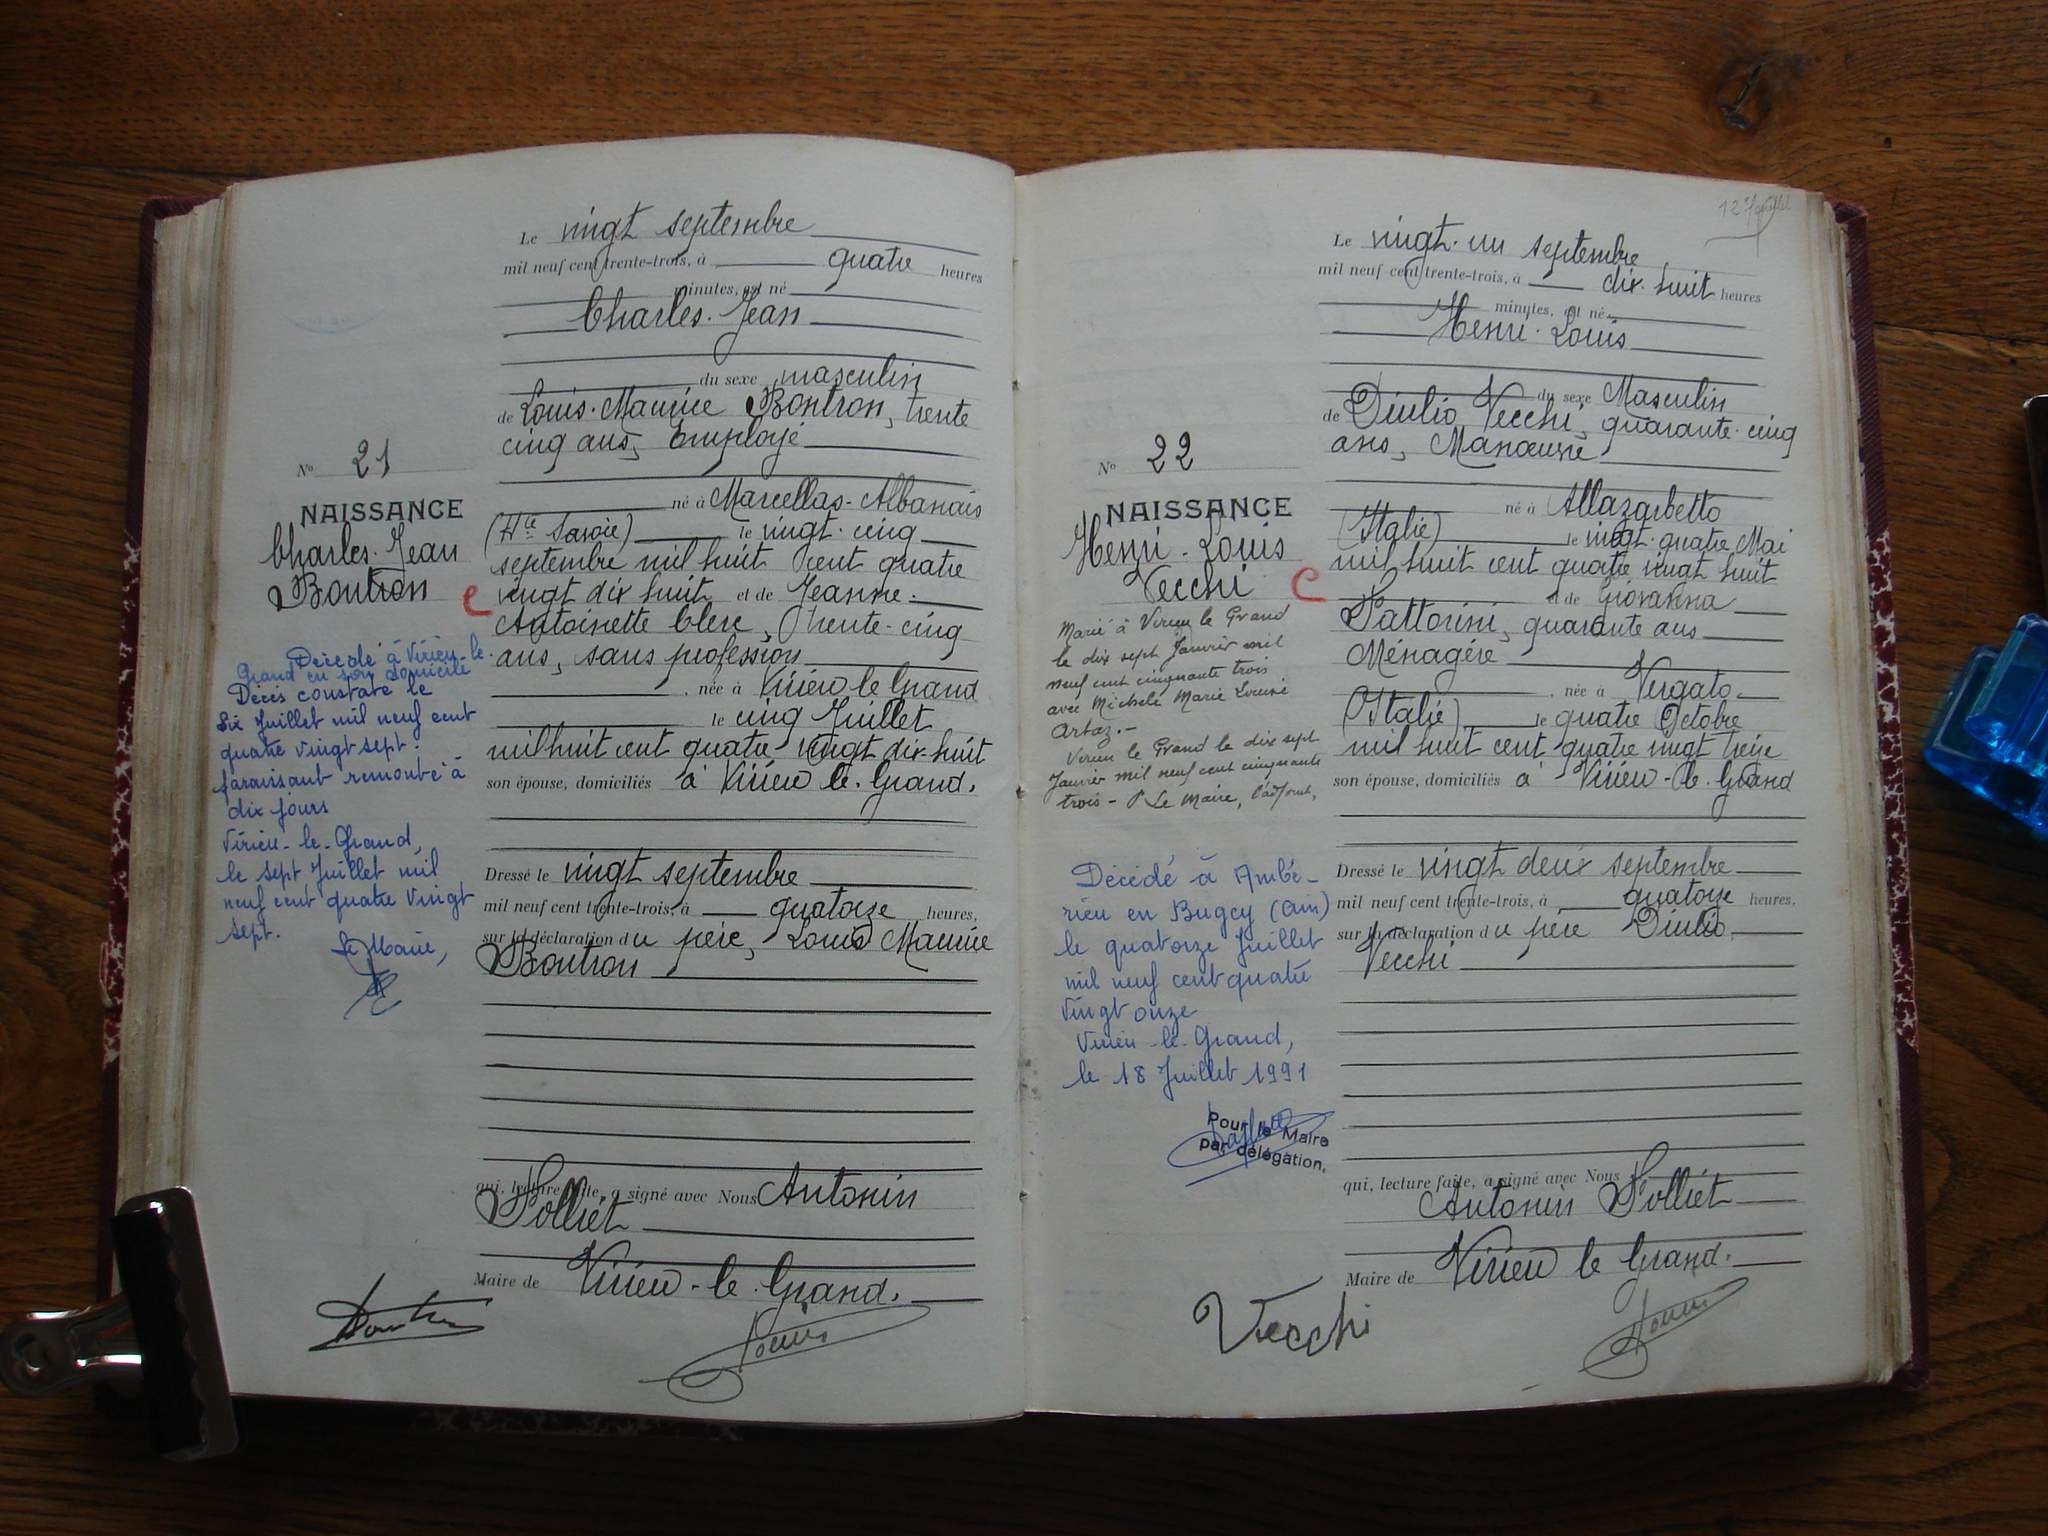 Le vingt septembre
mil neuf cent trente-trois, à quatre heures
minutes, est né
Charles-Jean
du sexe masculin
de Louis-Maurice Bontron, trente
cinq ans, Employé
né à Marcellas-Albanais
(Hte Savoie) le vingt-cinq
septembre mil huit cent quatre
vingt dix huit et de Jeanne-
Antoinette Clerc, trente-cinq
ans, sans profession
, née à Virieu le Grand
le cinq Juillet
mil huit cent quatre vingt dix huit
son épouse, domiciliés à Virieu-le-Grand.
Dressé le vingt septembre
mil neuf cent trente-trois, à quatorze heures,
sur la déclaration du père, Louis Maurice
Bontron
qui, lecture faite, a signé avec Nous Antonin
Solliet
Maire de Virieu-le-Grand.
No 21
NAISSANCE
Charles-Jean
Bontron
C
Décédé à Virieu-le-
Grand en son domicile
Décès constaté le
Six Juillet mil neuf cent
quatre vingt sept.
paraissant remonté à
dix jours
Virieu-le-Grand,
le sept Juillet mil
neuf cent quatre vingt
sept.
Le Maire,
12e feuillet
Le vingt-un septembre
mil neuf cent trente-trois, à dix-huit heures
minutes, est né
Henri-Louis
du sexe Masculin
de Diulio Vecchi, quarante-cinq
ans, Manœuvre
né à Allazarbetto
(Italie) le vingt-quatre Mai
mil huit cent quatre vingt huit
et de Giovanna
Sattorini, quarante ans
Ménagère
, née à Vergato
(Italie) le quatre Octobre
mil huit cent quatre vingt treize
son épouse, domiciliés à Virieu-le-Grand
Dressé le vingt deux septembre
mil neuf cent trente-trois, à quatorze heures,
sur la déclaration du père Diulio
Vecchi
qui, lecture faite, a signé avec Nous
Antonin Solliet
Maire de Virieu le Grand.
Vecchi
No 22
NAISSANCE
Henri-Louis
Vecchi
C
Marié à Virieu le Grand
le dix sept Janvier mil
neuf cent cinquante trois
avec Michele Marie Louise
Artaz.-
Virieu le Grand le dix sept
Janvier mil neuf cent cinquante
trois - P Le Maire, l'adjoint,
Décédé à Ambé-
rieu en Bugey (Ain)
le quatorze Juillet
mil neuf cent quatre
vingt onze
Virieu-le-Grand,
le 18 Juillet 1991
Pour le Maire
par délégation,